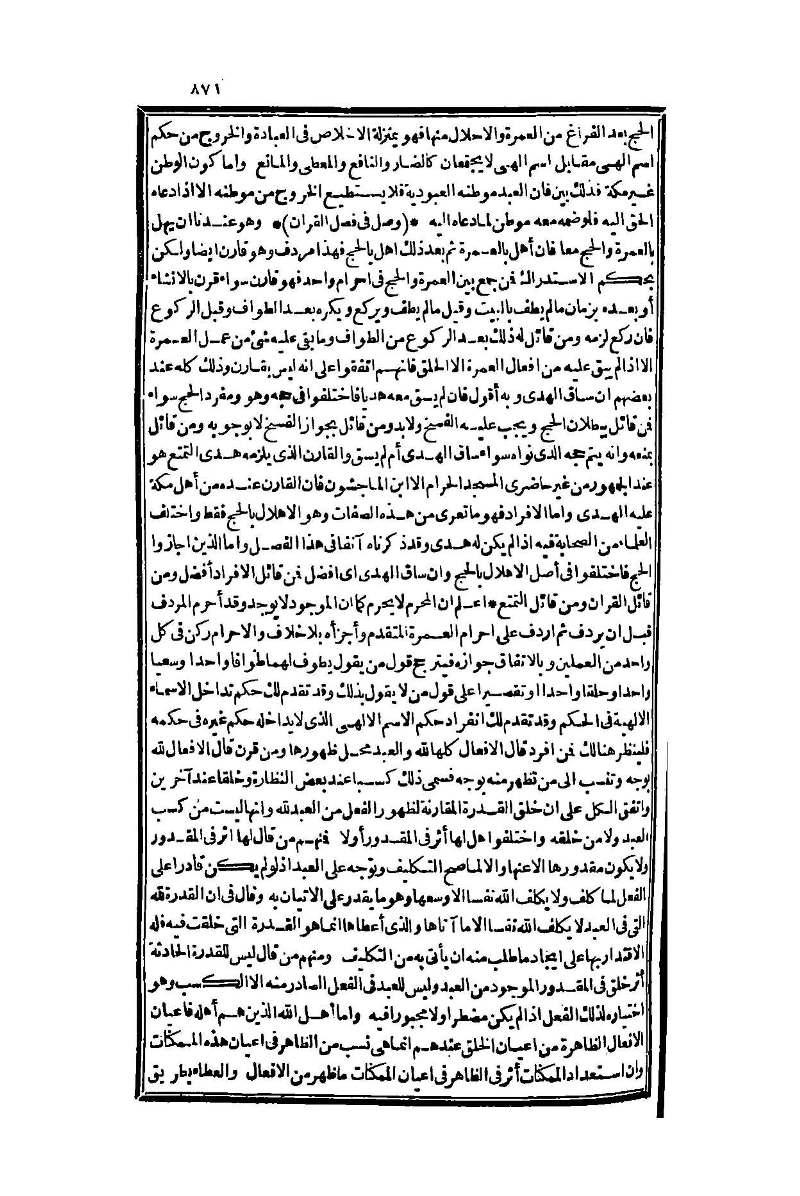 ٨٧١
الحج بعد الفراغ من العمرة والاحلال منها فهو بمنزلة الاخلاص فى العبادة والخروج من حكم
اسم الهى مقابل اسم الهى لا يجتمعان كالضار والنافع والمعطى والمانع واما كون الوطن
غير مكة فذلك بين فان العبد موطنه العبودية فلا يستطيع الخروج من موطنه الا اذا دعاه
الحق اليه فلو ضمه معه موطن لما دعاه اليه * (وصل فى فصل القران) * وهو عندنا ان يهل
بالعمرة والحج معا فان أهل بالعمرة ثم بعد ذلك اهل بالحج فهذا مردف وهو قارن ايضا ولكن
بحكم الاستدراك فمن جمع بين العمرة والحج فى احرام واحد فهو قارن سواء قرن بالانشاء
أو بعده بزمان مالم يطف بالبيت وقيل مالم يطف ويركع ويكره بعد الطواف وقبل الركوع
فان ركع لزمه ومن قائل له ذلك بعد الركوع من الطواف وما بقى عليه شئ من عمل العمرة
الا اذا لم يبق عليه من افعال العمرة الا الحلق فانهم اتفقوا على انه ليس بقارن وذلك كله عند
بعضهم ان ساق الهدى وبه أقول فان لم يسق معه هديا فاختلفوا فى حجه وهو ومفرد الحج سواء
فمن قائل ببطلان الحج ويجب عليه الفسخ ولا بد ومن قائل بجواز الفسخ لا بوجوبه ومن قائل
بمنعه وانه يتم حجه الذى نواه سواء ساق الهدى أم لم يسق والقارن الذى يلزمه هدى التمتع هو
عند الجمهور من غير حاضرى المسجد الحرام الا ابن الماجشون فان القارن عنده من أهل مكة
عليه الهدى واما الافراد فهو ما تعرى من هذه الصفات وهو الاهلال بالحج فقط واختلف
العلماء من الصحابة فيه اذا لم يكن له هدى وقد ذكرناه آنفا فى هذا الفصل واما الذين اجازوا
الحج فاختلفوا فى أصل الاهلال بالحج وان ساق الهدى اى افضل فمن قائل الافراد أفضل ومن
قائل القران ومن قائل التمتع * اعلم ان المحرم لا يحرم كما ان الموجود لا يوجد وقد أحرم المردف
قبل ان يردف ثم اردف على احرام العمرة المتقدم وأجزأه بلا خلاف والاحرام ركن فى كل
واحد من العملين وبالاتفاق جوازه فيترجح قول من يقول يطوف لهما طوافا واحدا وسعيا
واحدا وحلقا واحدا وتقصيرا على قول من لا يقول بذلك وقد تقدم لك حكم تداخل الاسماء
الالهية فى الحكم وقد تقدم لك انفراد حكم الاسم الالهى الذى لا يداخله حكم غيره فى حكمه
فلينظر هنالك فمن افرد قال الافعال كلها لله والعبد محل ظهورها ومن قرن قال الافعال لله
بوجه وتنسب الى من تظهر منه بوجه فسمى ذلك كسبا عند بعض النظارة وخلقا عند آخرين
واتفق الكل على ان خلق القدرة المقارنة لظهور الفعل من العبد لله وانها ليست من كسب
العبد ولا من خلقه واختلفوا هل لها أثر فى المقدور أولا فمنهم من قال لها اثر فى المقدور
ولا يكون مقدورها الا عنها والا لما صح التكليف وتوجه على العبد اذ لو لم يكن قادرا على
الفعل لما كلف ولا يكلف الله نفسا الا وسعها وهو ما يقدر على الاتيان به وقال فى ان القدرة لله
التى فى العبد لا يكلف الله نفسا الا ما آتاها والذى أعطاها انما هو القدرة التى خلقت فيه فله
الاقتدار بها على ايجاد ما طلب منه ان يأتى به من التكليف ومنهم من قال ليس للقدرة الحادثة
أثر خلق فى المقدور الموجود من العبد وليس للعبد فى الفعل الصادر منه الا الكسب وهو
اختياره لذلك الفعل اذ لم يكن مضطرا ولا مجبورا فيه واما أهل الله الذين هم أهله فاعيان
الافعال الظاهرة من اعيان الخلق عندهم انما هى نسب من الظاهر فى اعيان هذه الممكنات
وان استعداد الممكنات أثر فى الظاهر فى اعيان الممكنات ما ظهر من الافعال والعطاء بطريق